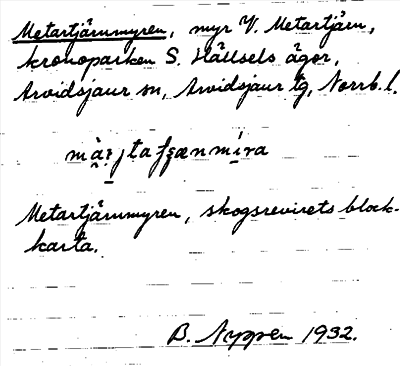 Metartjärnmyren, myr V. Metartjärn,
kronoparken S. Hällsels ägor,
Arvidsjaur sn, Arvidsjaur tg, Norrb. l.
Metartjärnmyren, skogsrevirets block-
karta.
B. Nyppen 1932.